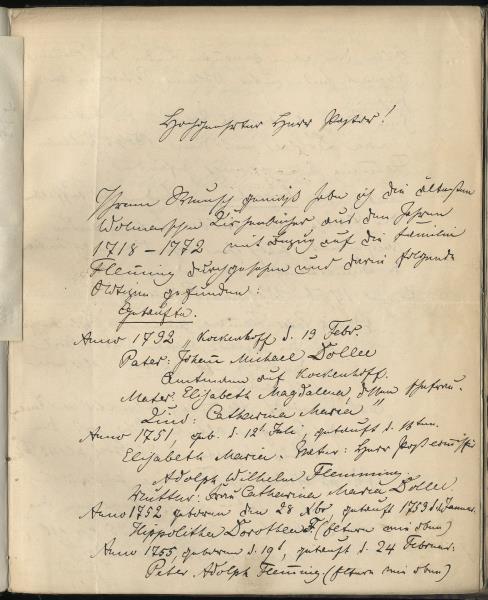 Hochgeehrter Herr Pastor!
Ihrem Wunsch gemäß habe ich die ältesten
Wolmarschen Kirchenbücher aus den Jahren
1718 – 1772 mit Bezug auf die Familie
Flemming durchgesehen und darin folgende
Notizen gefunden:
Getaufte.
Anno 1732 „Kockenhoff d. 19 Febr.
Pater: Johann Michael Dollee
Amtmann auf Kockenhoff.
Mater: Elisabeth Magdalena, dessen Ehefrau.
Kind: Catharina Maria"
Anno 1751, geb. d. 12t Juli, getauft d. 13ten.
Elisabeth Maria. Vater: Herr
Adolph Wilhelm Flemming.
Mutter: Frau Catharina Maria Dollee.
Anno 1752 geboren den 28 Xbr, getauft 1753 d. Januar.
Hippolitha Dorothea F. (Eltern wie oben)
Anno 1755, geboren d. 19t, getauft d. 24 Februar.
Peter Adolph Flemming. (Eltern wie oben)